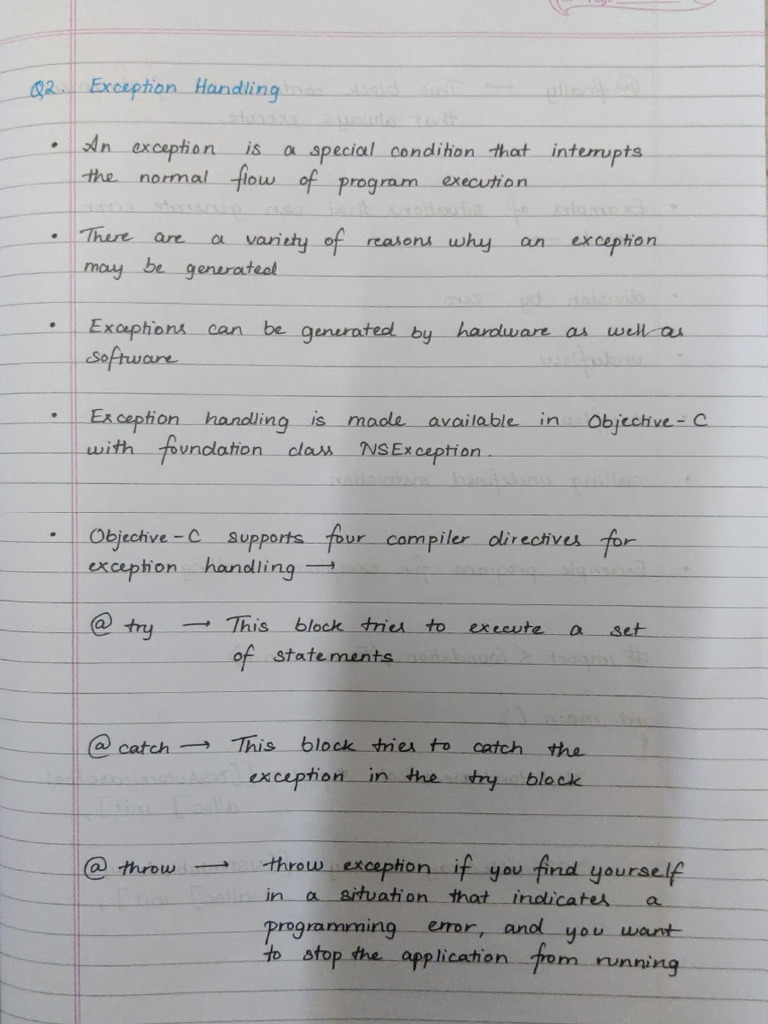 Q2. Exception Handling
• An exception is a special condition that interrupts
the normal flow of program execution
• There are a variety of reasons why an exception
may be generated
• Exceptions can be generated by hardware as well as
software
• Exception handling is made available in Objective-C
with foundation class NSException.
• Objective-C supports four compiler directives for
exception handling →
@try → This block tries to execute a set
of statements
@catch → This block tries to catch the
exception in the try block
@throw → throw exception if you find yourself
in a situation that indicates a
programming error, and you want
to stop the application from running